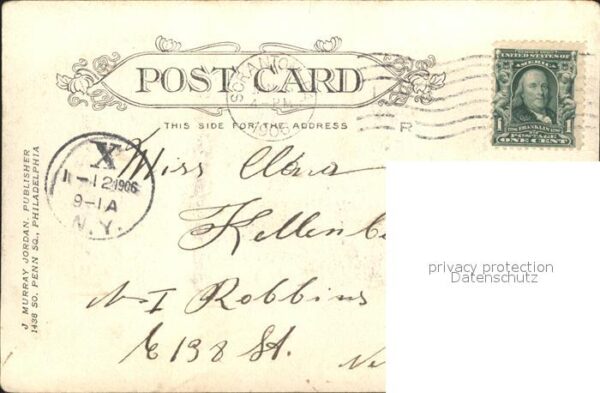 POST CARD
THIS SIDE FOR THE ADDRESS
SCRANTON
1906
R
UNITED STATES OF
AMERICA
FRANKLIN
1 1
ONE CENT
X
11-12 1906
9-1A
N.Y.
Miss Clara
Kellenb
N I Robbins
E 138 St.
J. MURRAY JORDAN, PUBLISHER
1438 SO. PENN SQ., PHILADELPHIA
privacy protection
Datenschutz